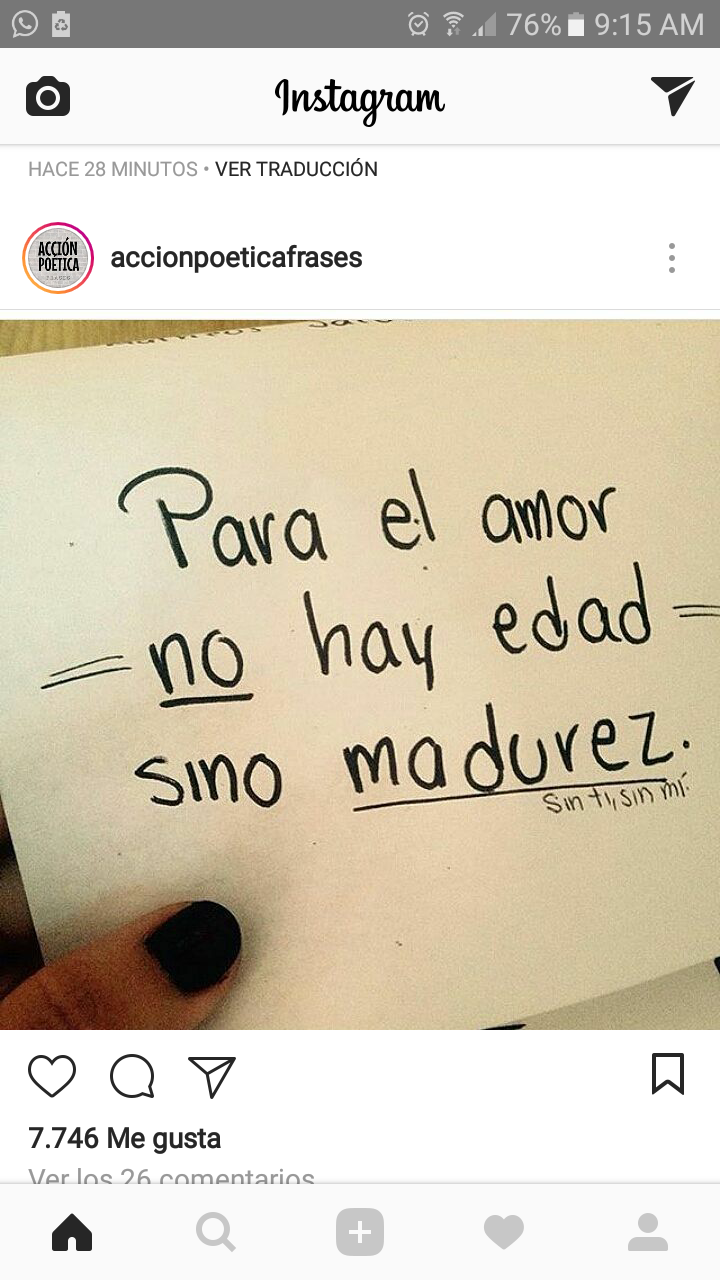 76% 9:15 AM
Instagram
HACE 28 MINUTOS • VER TRADUCCIÓN
ACCIÓN
POETICA
FRASES
accionpoeticafrases
Para el amor
no hay edad
sino madurez.
Sin ti, sin mí.
7.746 Me gusta
Ver los 26 comentarios